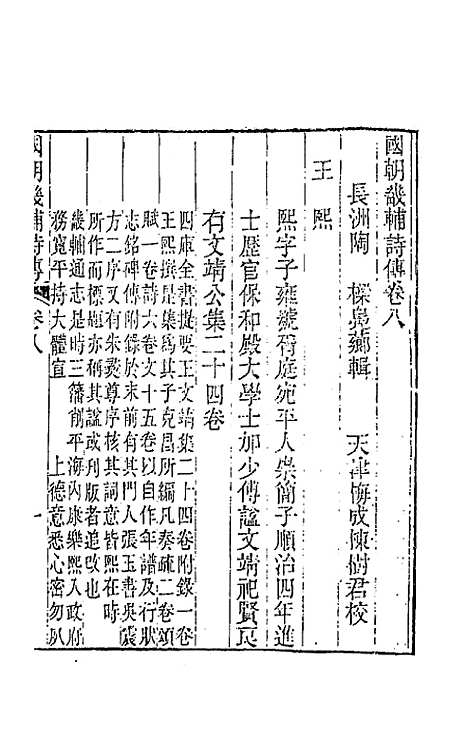 國朝畿輔詩傳卷八
長洲陶樑鳧薌輯 天津梅成棟樹君校
王熙
熙字子雍號胥庭宛平人崇簡子順治四年進
士歷官保和殿大學士加少傅諡文靖祀賢良
有文靖公集二十四卷
四庫全書提要王文靖集二十四卷附錄一卷
王熙撰是集爲其子克昌所編凡奏疏二卷頌
賦一卷詩六卷文十五卷以自作年譜及行狀
志銘碑傳附錄於末前有其門人張玉書吳震
方二序又有朱彝尊序核其詞意皆熙在時
所作而標題亦稱其諡或刋版者追改也
畿輔通志是時三藩削平海內康樂熙入政府
務寬平持大體宣 上德意悉心密勿夙
國朝畿輔詩傳 卷八 一